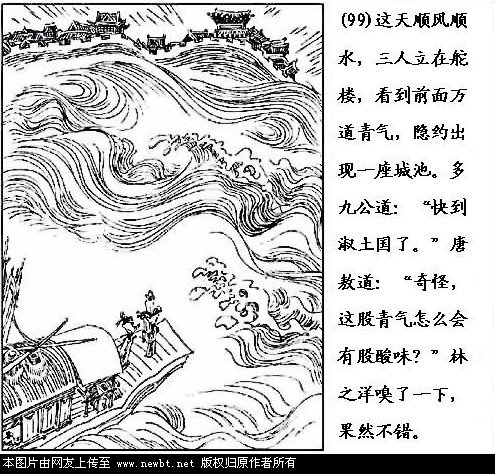 (99)这天顺风顺
水，三人立在舵
楼，看到前面万
道青气，隐约出
现一座城池。多
九公道：“快到
淑士国了。”唐
敖道：“奇怪，
这股青气怎么会
有股酸味？”林
之洋嗅了一下，
果然不错。
本图片由网友上传至 www.newbt.net 版权归原作者所有